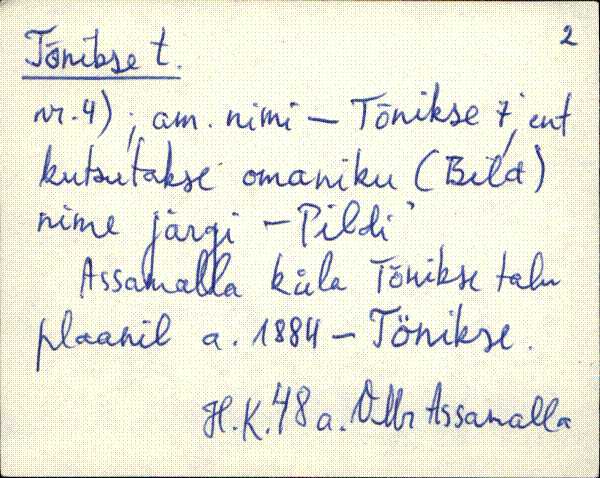 2
Tõnikse t.
nr. 4); am. nimi – Tõnikse t, ent
kutsutakse omaniku (Bild)
nime järgi – Pildi'
Assamalla küla Tõnikse talu
plaanil a. 1884 – Tönikse.
H.K. 48 a. VMr Assamalla